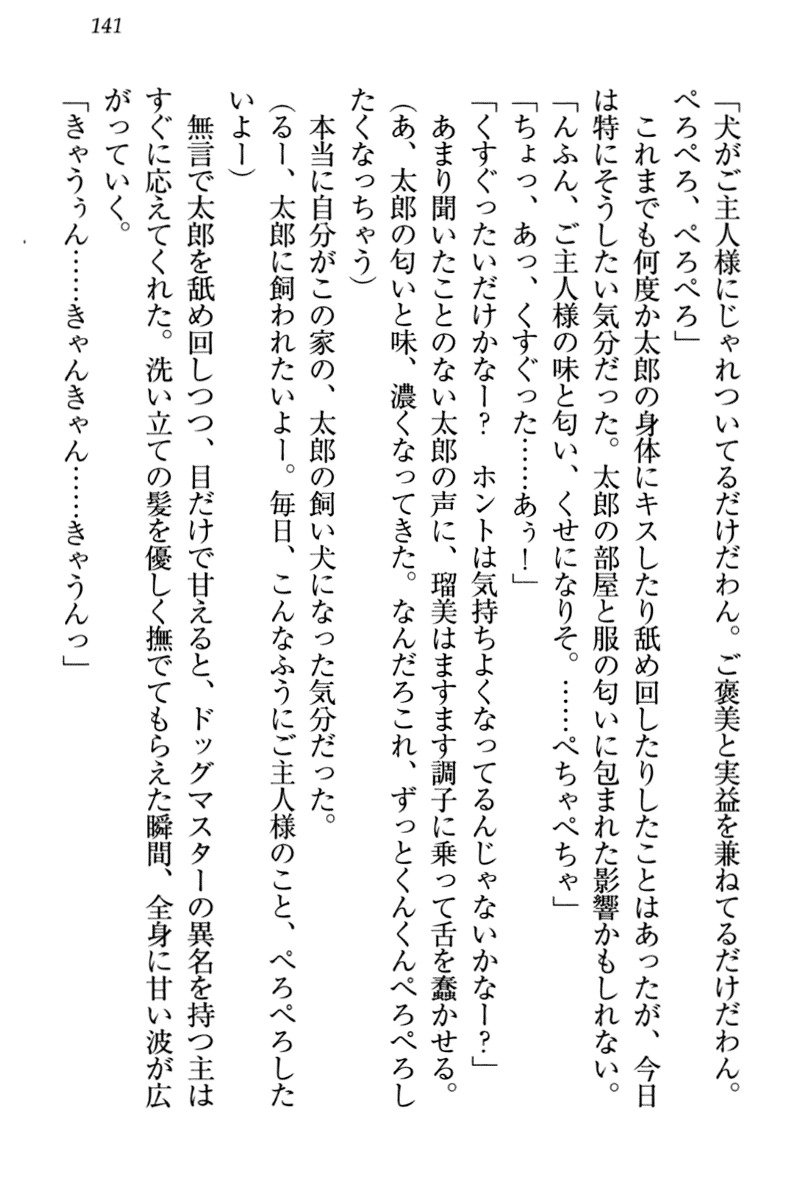 141
「犬がご主人様にじゃれついてるだけだわん。ご褒美と実益を兼ねてるだけだわん。
ぺろぺろ、ぺろぺろ」
これまでも何度か太郎の身体にキスしたり舐め回したりしたことはあったが、今日
は特にそうしたい気分だった。太郎の部屋と服の匂いに包まれた影響かもしれない。
「んふん、ご主人様の味と匂い、くせになりそ。……ぺちゃぺちゃ」
「ちょっ、あっ、くすぐった……あぅ！」
「くすぐったいだけかなー？　ホントは気持ちよくなってるんじゃないかなー？」
あまり聞いたことのない太郎の声に、瑠美はますます調子に乗って舌を蠢かせる。
(あ、太郎の匂いと味、濃くなってきた。なんだろこれ、ずっとくんくんぺろぺろし
たくなっちゃう)
本当に自分がこの家の、太郎の飼い犬になった気分だった。
(るー、太郎に飼われたいよー。毎日、こんなふうにご主人様のこと、ぺろぺろした
いよー)
無言で太郎を舐め回しつつ、目だけで甘えると、ドッグマスターの異名を持つ主は
すぐに応えてくれた。洗い立ての髪を優しく撫でてもらえた瞬間、全身に甘い波が広
がっていく。
「きゃうぅん……きゃんきゃん……きゃうんっ」